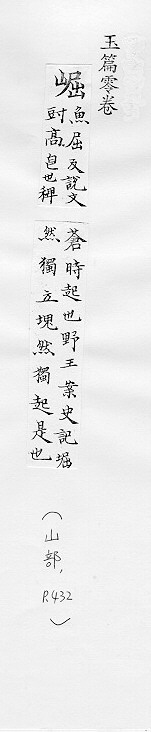 玉篇零卷
崛
魚屈反說文
㝵高皃也稗
蒼時起也野王案史記堀
然獨立塊然獨起是也
(山部,
P.432)